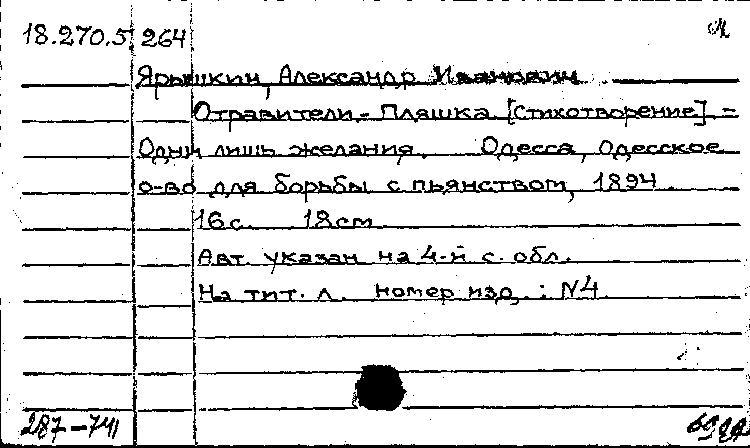 18.270.5.264
Ярышкин, Александр Иванович
Отравители. - Пляшка. [Стихотворение]. -
Одни лишь желания. Одесса, Одесское
о-во для борьбы с пьянством, 1894.
16 с. 18 cm
Авт. указан на 4-й с. обл.
На тит. л. номер изд.: N4
287-741